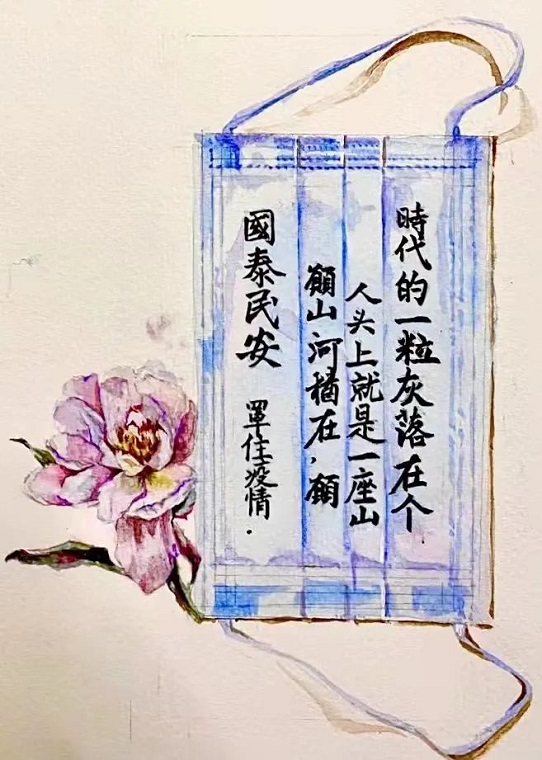 時代的一粒灰落在个
人头上就是一座山
願山河猶在，願
國泰民安 罩住疫情.